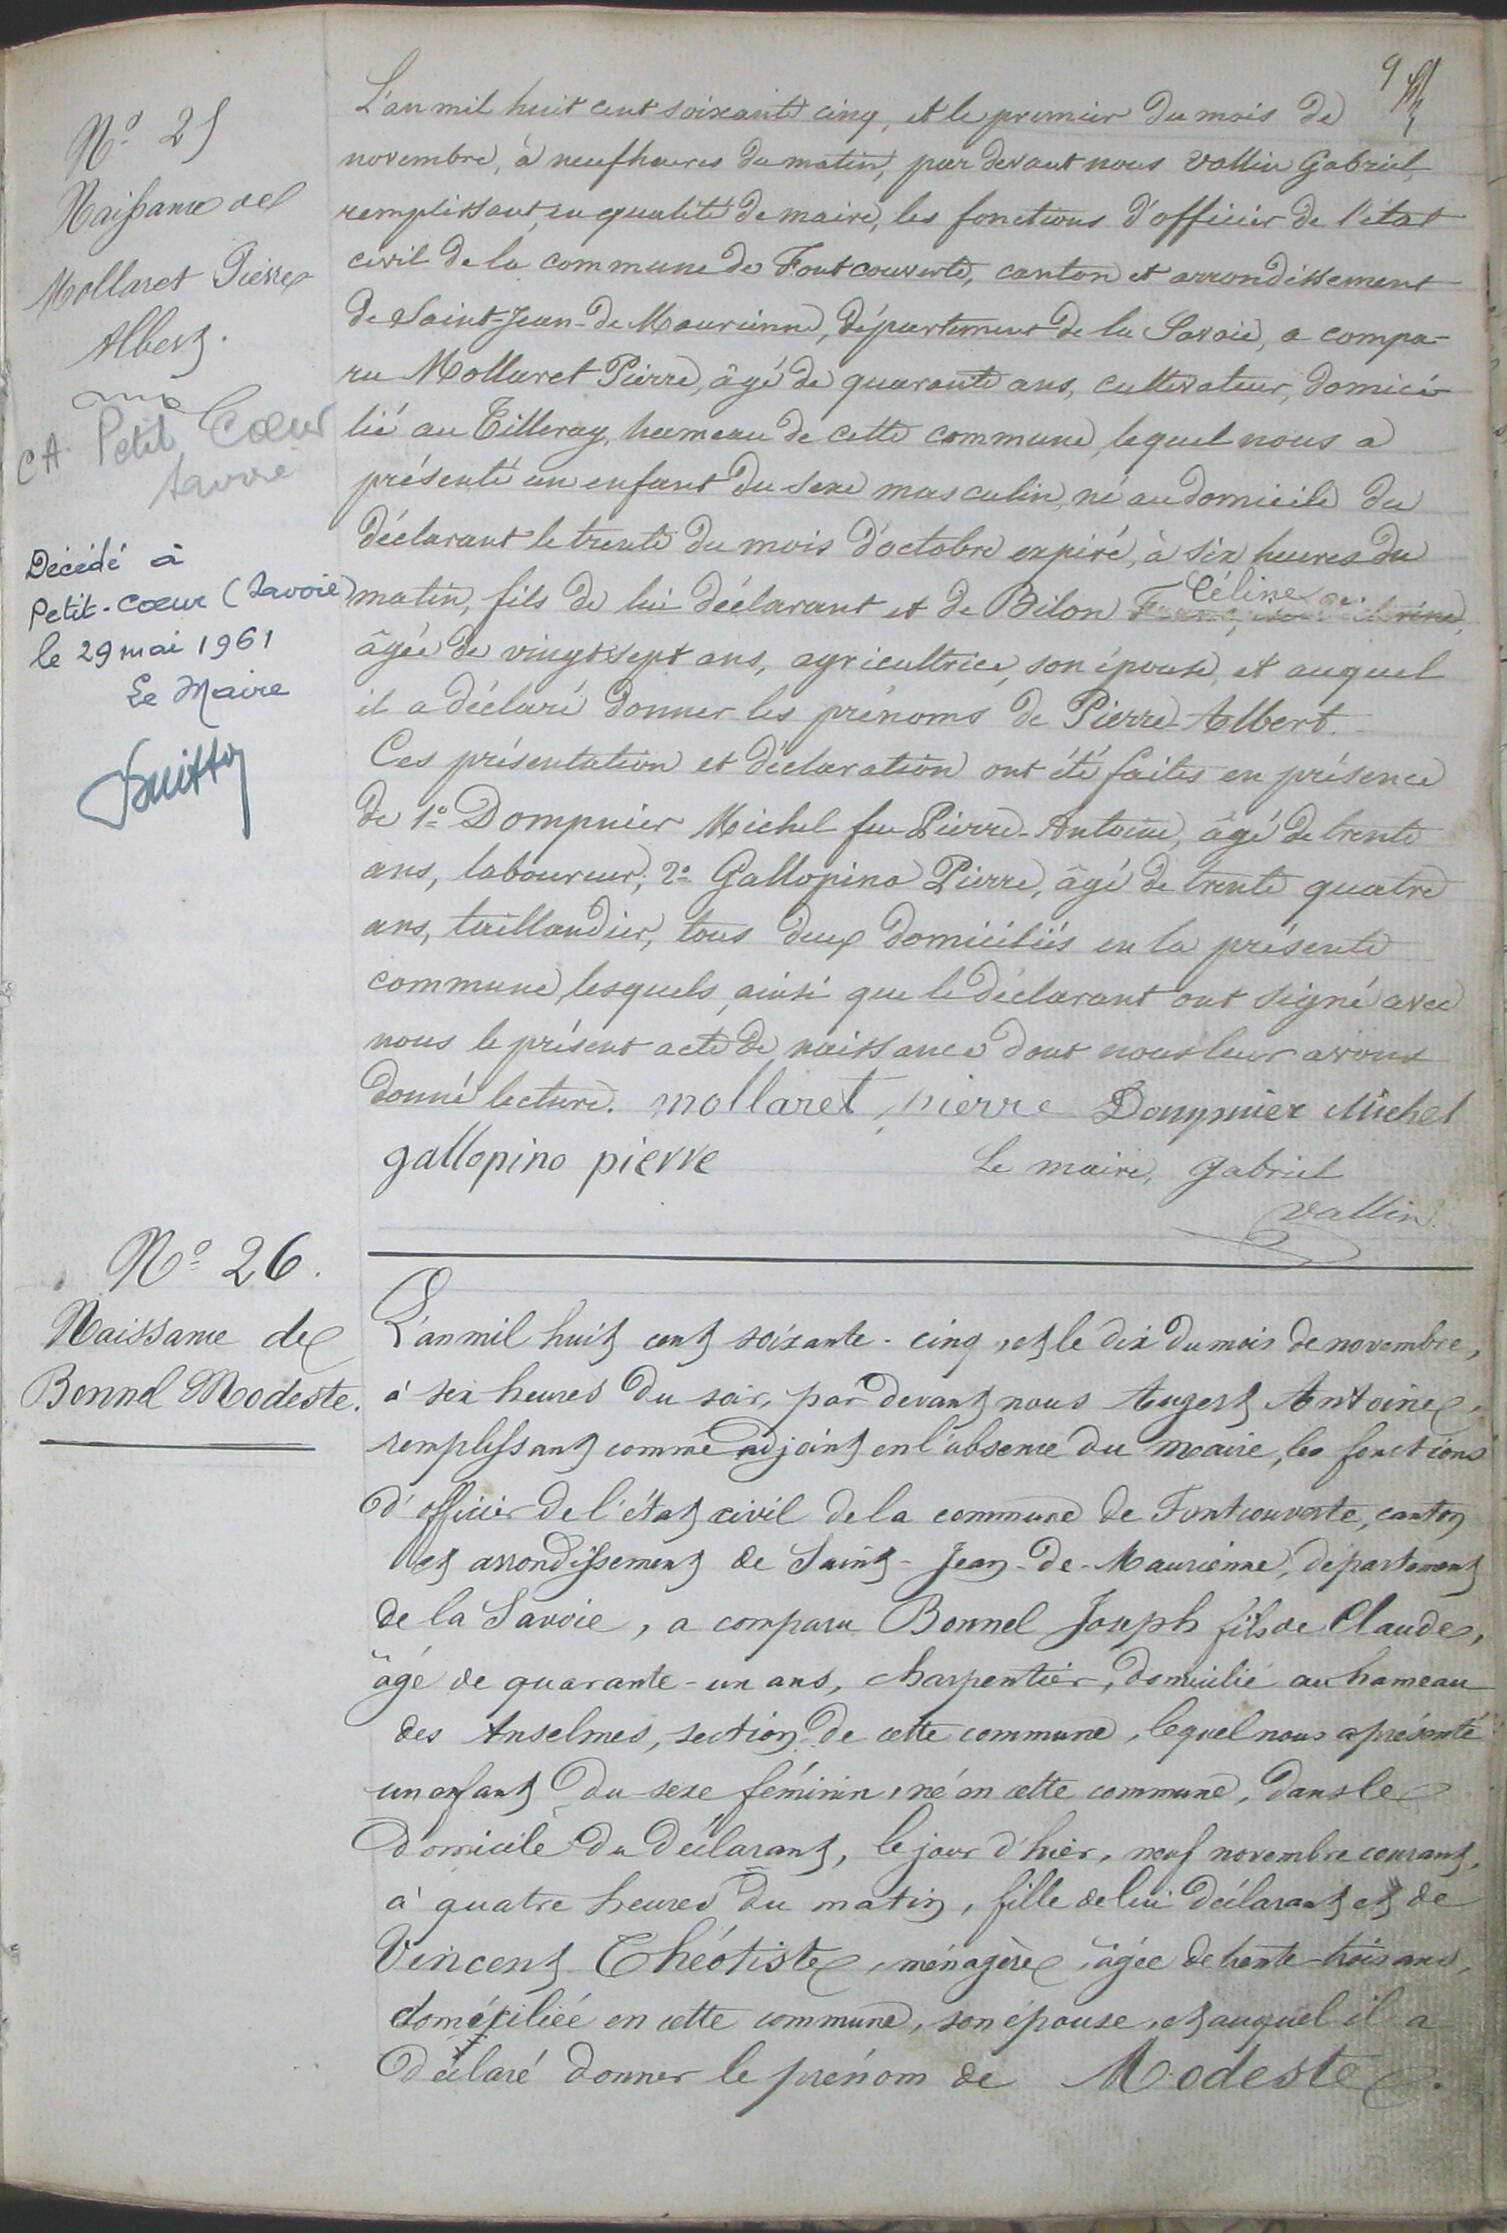 9
N° 25
Naissance de
Mollaret Pierre
Albert.
CA Petit Coeur
Savoie
Décédé à
Petit-Coeur (Savoie)
le 29 mai 1961
Le Maire
L'an mil huit cent soixante cinq, et le premier du mois de
novembre, à neuf heures du matin, par devant nous Vallin Gabriel,
remplissant, en qualité de maire, les fonctions d'officier de l'état
civil de la commune de Fontcouverte, canton et arrondissement
de Saint-Jean-de Maurienne, département de la Savoie, a compa-
ru Mollaret Pierre, âgé de quarante ans, cultivateur, domici-
lié au Tilleray, hameau de cette commune, lequel nous a
présenté un enfant du sexe masculin, né au domicile du
déclarant le trente du mois d'octobre expiré, à six heures du
matin, fils de lui déclarant et de Bilon Céline
âgée de vingt sept ans, agricultrice, son épouse, et auquel
il a déclaré donner les prénoms de Pierre-Albert.
Ces présentation et déclaration ont été faites en présence
de 1° Dompnier Michel feu Pierre-Antoine, âgé de trente
ans, laboureur; 2° Gallopino Pierre, âgé de trente quatre
ans, taillandier, tous deux domiciliés en la présente
commune, lesquels, ainsi que le déclarant ont signé avec
nous le présent acte de naissance dont nous leur avons
donné lecture. mollaret pierre Dompnier Michel
gallopino pierre Le maire, Gabriel
Vallin
N° 26.
Naissance de
Bonnel Modeste.
L'an mil huit cent soixante-cinq, et le dix du mois de novembre,
à six heures du soir, par devant nous Augert Antoine,
remplissant comme adjoint en l'absence du maire, les fonctions
d'officier de l'état civil de la commune de Fontcouverte, canton
et arrondissement de Saint-Jean-de-Maurienne, département
de la Savoie, a comparu Bonnel Joseph fils de Claude,
âgé de quarante-un ans, charpentier, domicilié au hameau
des Anselmes, section de cette commune, lequel nous a présenté
un enfant du sexe féminin, né en cette commune, dans le
domicile du déclarant, le jour d'hier, neuf novembre courant,
à quatre heures du matin, fille de lui déclarant et de
Vincent Théotiste, ménagère, âgée de trente-trois ans,
domiciliée en cette commune, son épouse, et auquel il a
déclaré donner le prénom de Modeste.